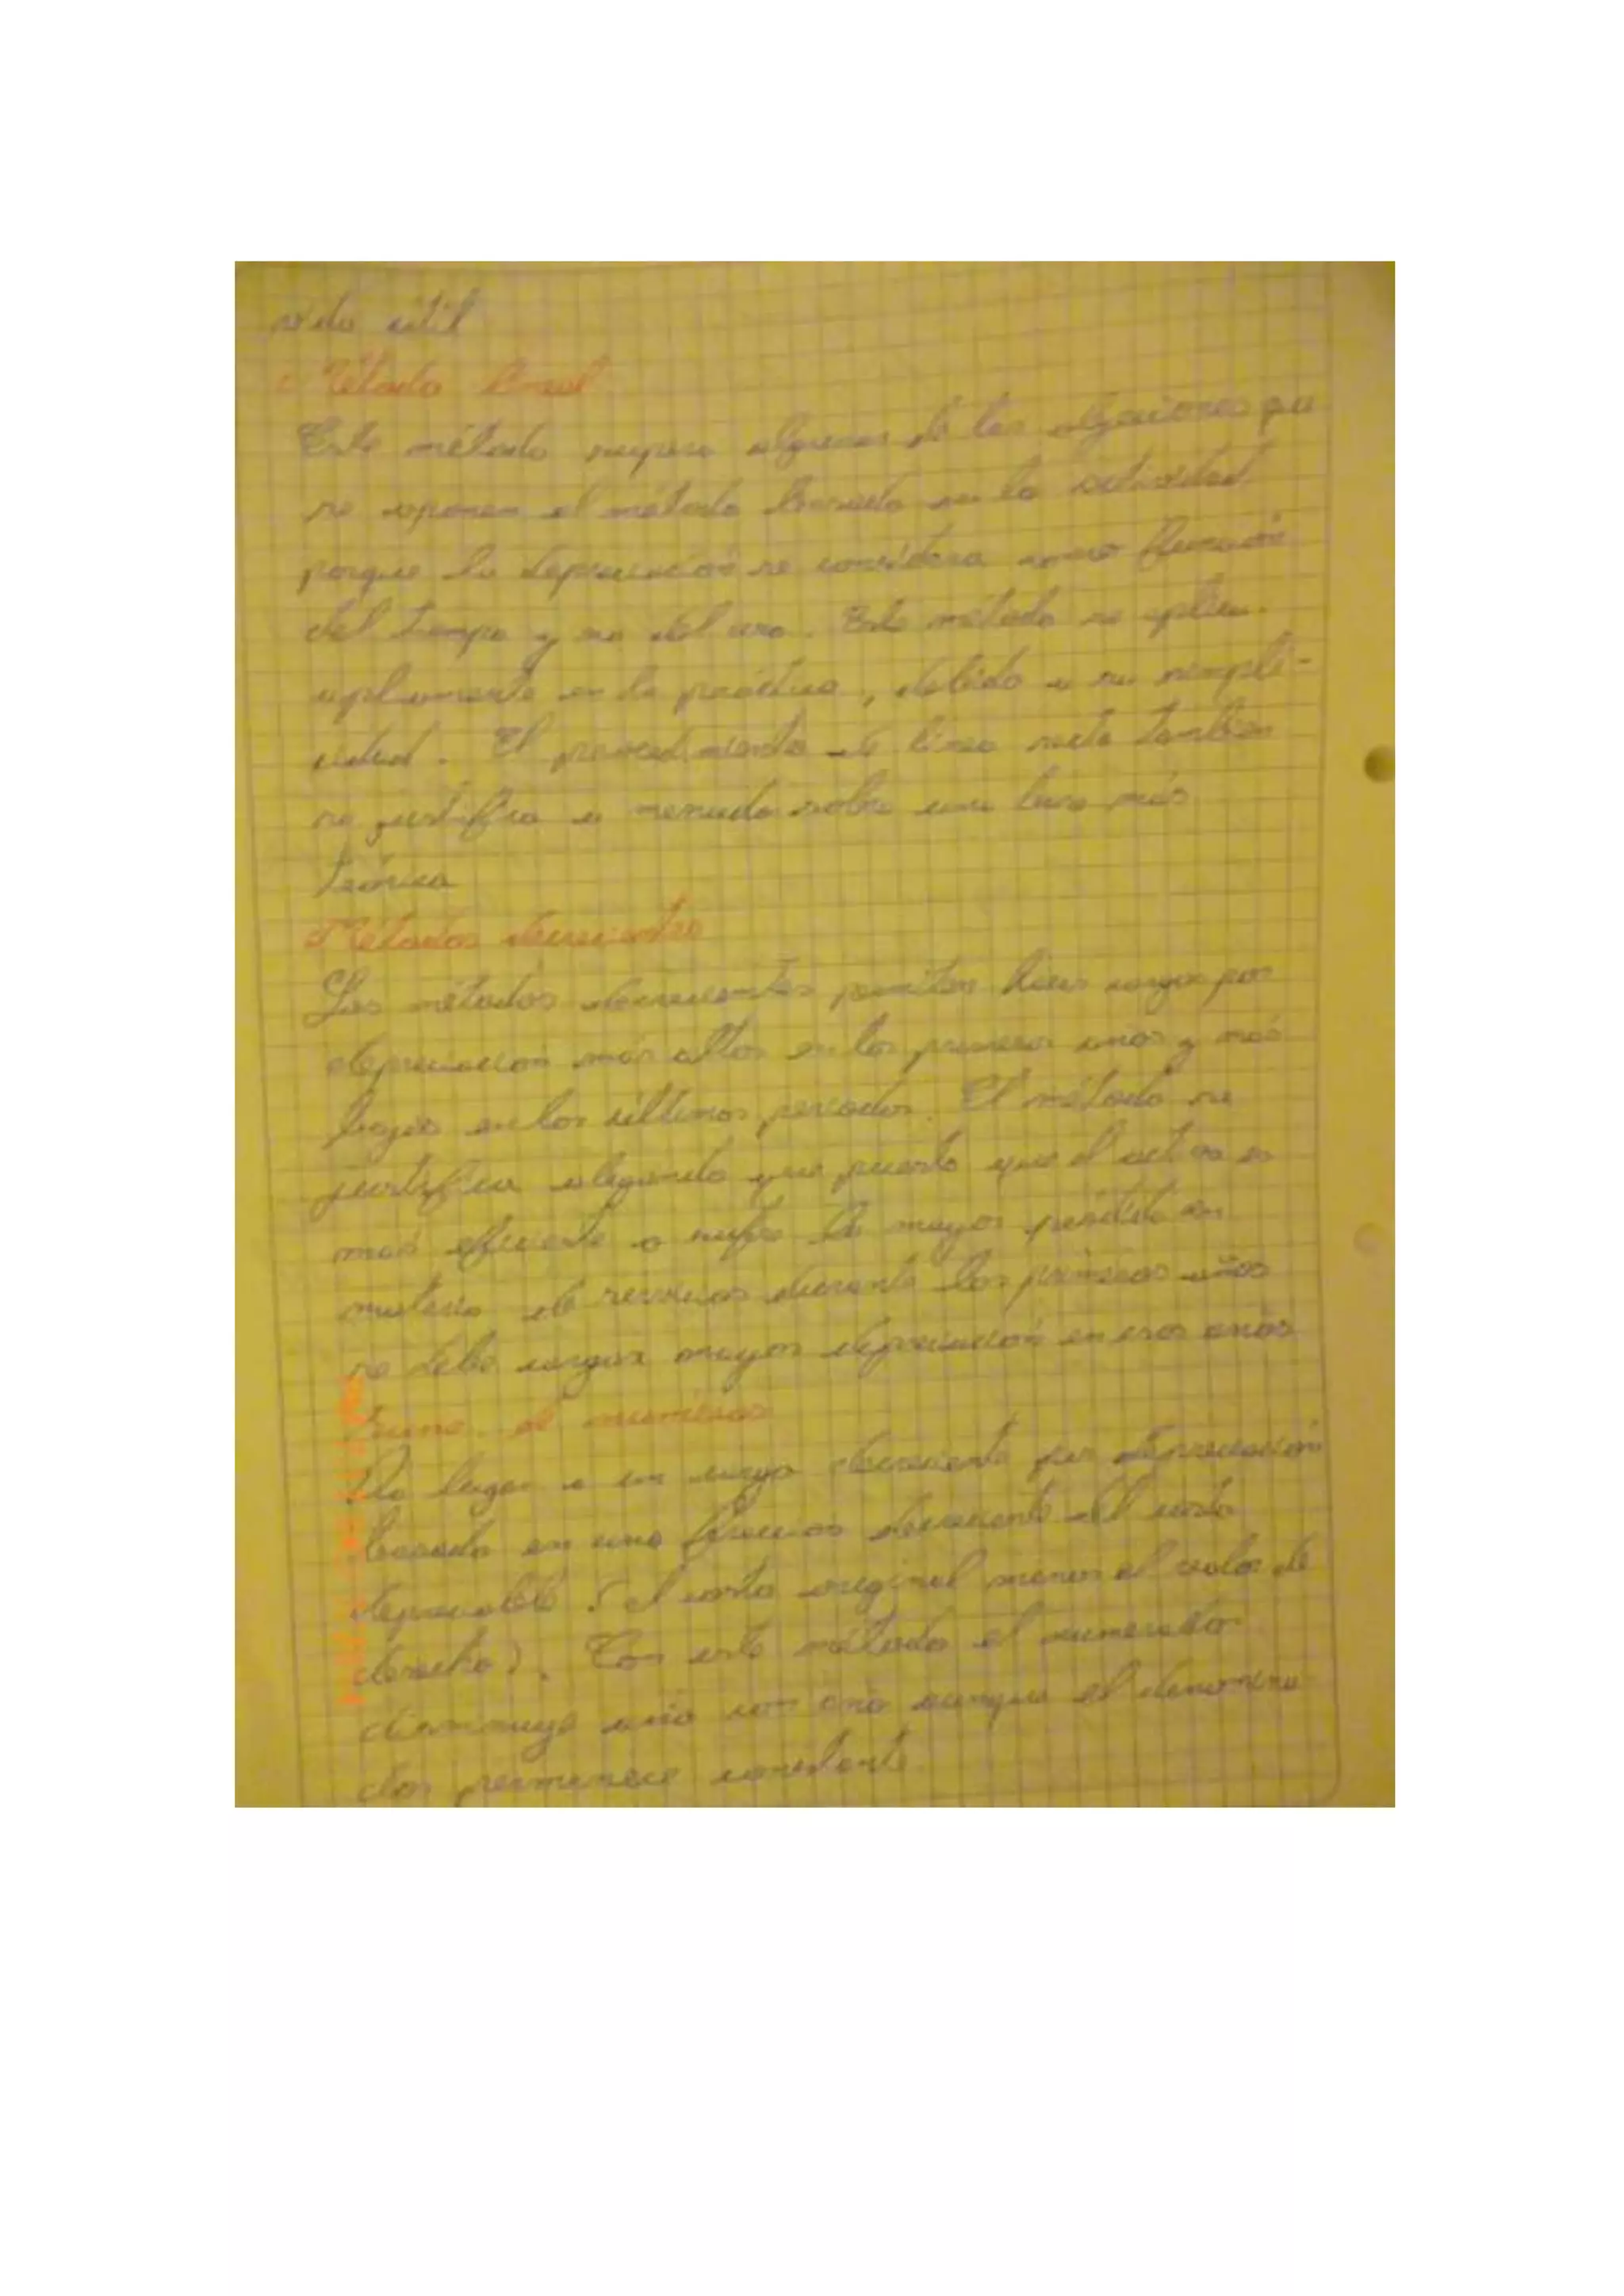 vida útil
Método lineal
Este método supera algunas de las objeciones que
se oponen al método basado en la actividad
porque la depreciación se considera como función
del tiempo y no del uso. Este método se aplica
ampliamente en la práctica, debido a su simpli-
cidad. El procedimiento de línea recta también
se justifica a menudo sobre una base más
teórica
Métodos decreciente
Los métodos decrecientes permiten hacer cargos por
depreciación más altos en los primeros años y más
bajos en los últimos periodos. El método se
justifica alegando que puesto que el activo es
más eficiente o sufre la mayor pérdida en
materia de servicios durante los primeros años
se debe cargar mayor depreciación en esos años
suma de números
Da lugar a un cargo decreciente por depreciación
basado en una fracción decreciente del costo
depreciable (el costo original menos el valor de
desecho). Con este método el numerador
disminuye año con año aunque el denomina
dor permanece constante.